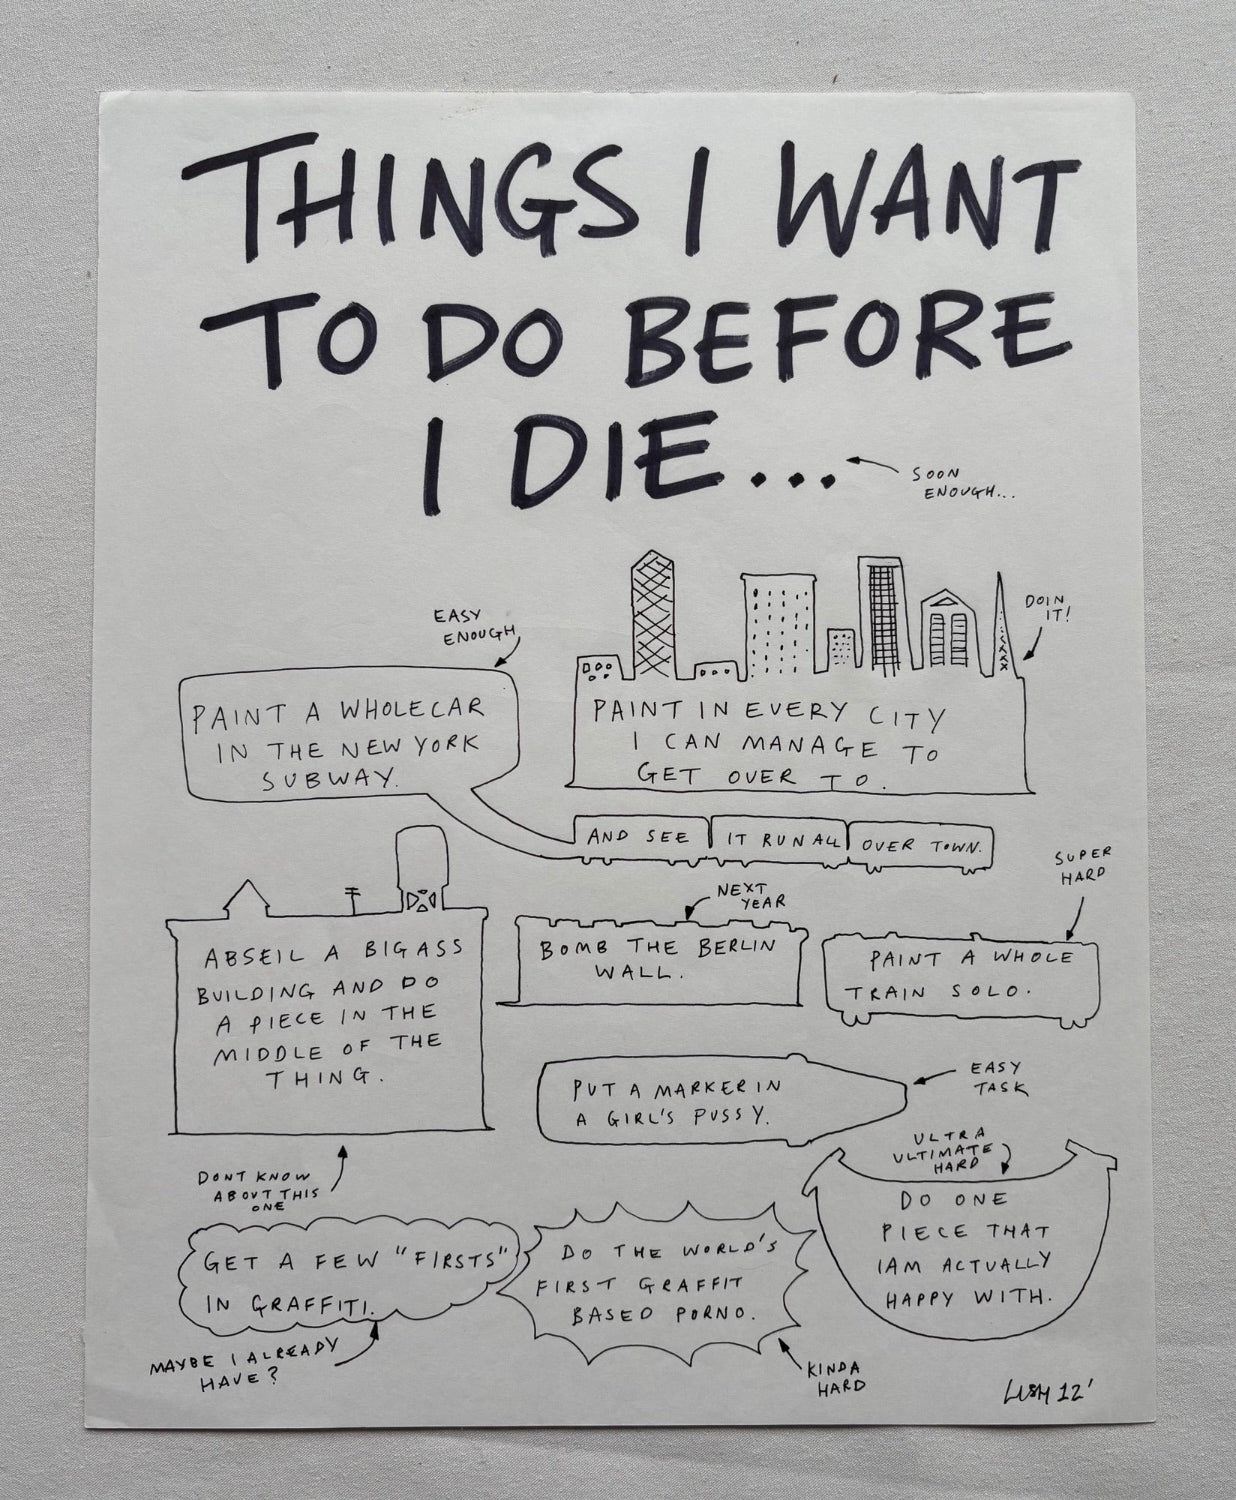 THINGS I WANT
TO DO BEFORE
I DIE...
SOON
ENOUGH...
EASY
ENOUGH
PAINT A WHOLECAR
IN THE NEW YORK
SUBWAY.
DOIN
IT!
PAINT IN EVERY CITY
I CAN MANAGE TO
GET OVER TO.
AND SEE IT RUN ALL OVER TOWN.
ABSEIL A BIG ASS
BUILDING AND DO
A PIECE IN THE
MIDDLE OF THE
THING.
DONT KNOW
ABOUT THIS
ONE
NEXT
YEAR
BOMB THE BERLIN
WALL.
SUPER
HARD
PAINT A WHOLE
TRAIN SOLO.
PUT A MARKER IN
A GIRL'S PUSSY.
EASY
TASK
GET A FEW "FIRSTS"
IN GRAFFITI.
MAYBE I ALREADY
HAVE?
DO THE WORLD'S
FIRST GRAFFIT
BASED PORNO.
KINDA
HARD
ULTRA
ULTIMATE
HARD
DO ONE
PIECE THAT
I AM ACTUALLY
HAPPY WITH.
LUSH 12'